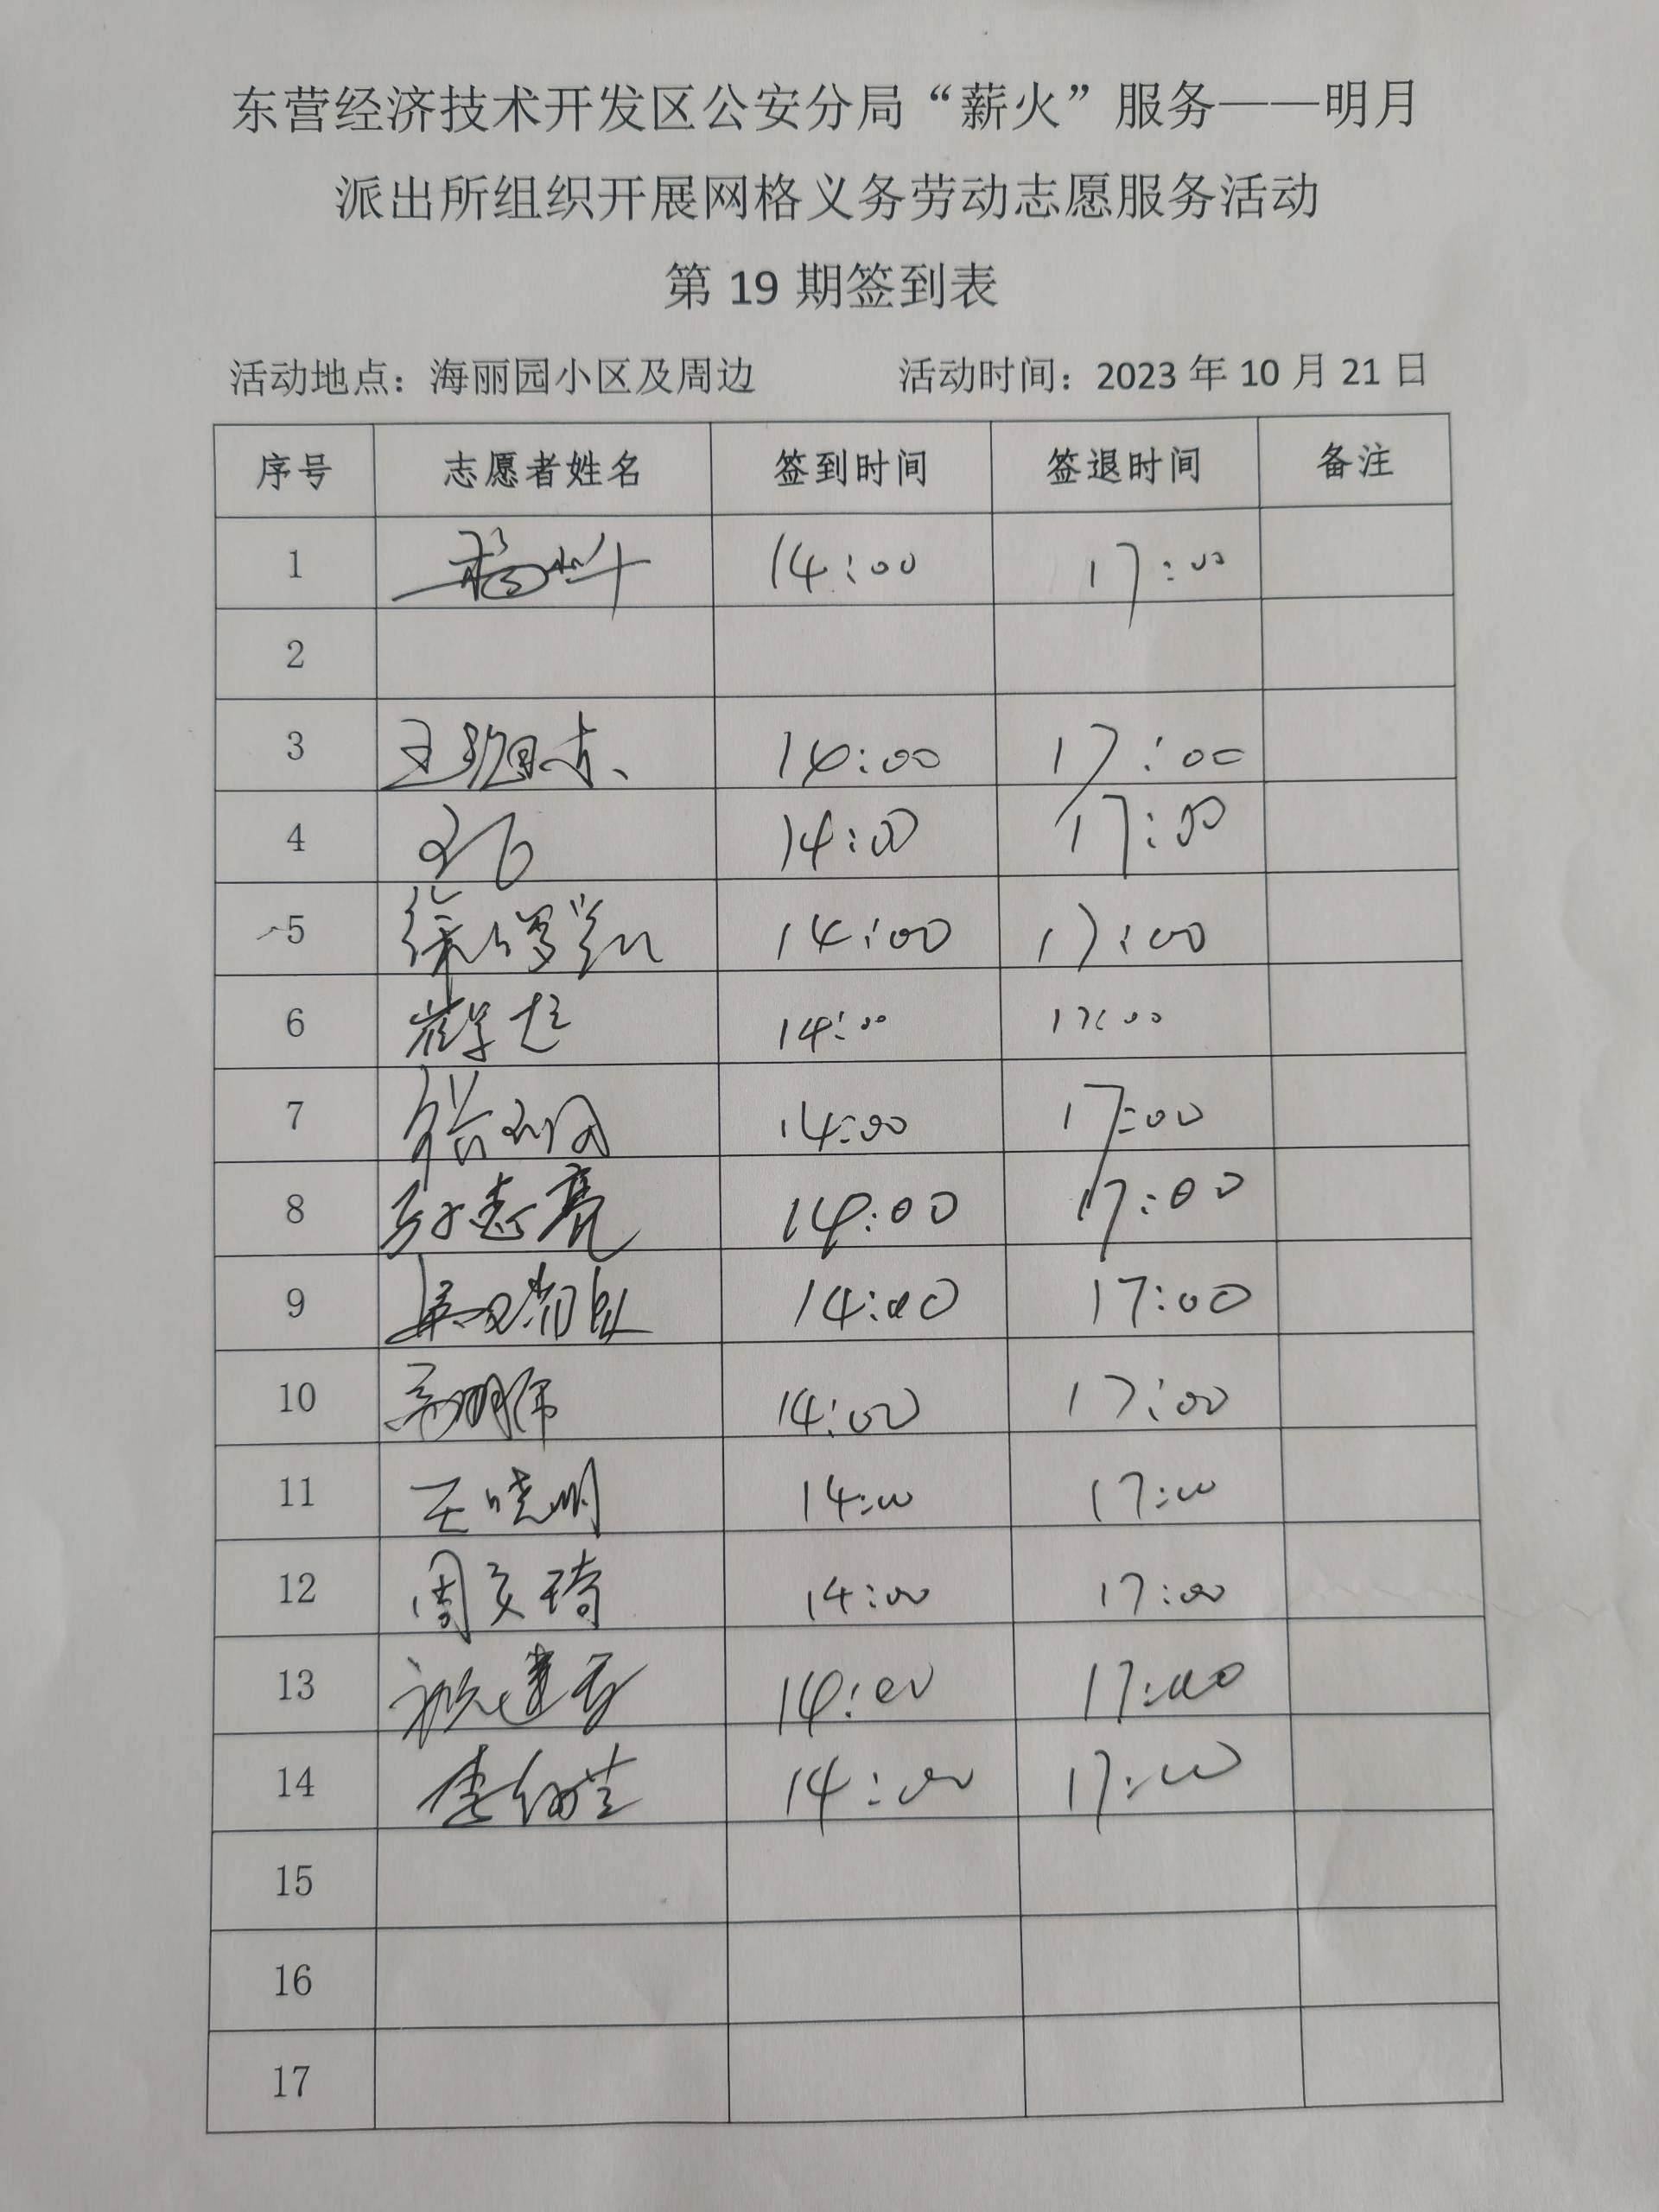 东营经济技术开发区公安分局“薪火”服务——明月
派出所组织开展网格义务劳动志愿服务活动
第 19 期签到表
活动地点：海丽园小区及周边 活动时间：2023 年 10 月 21 日
序号 志愿者姓名 签到时间 签退时间 备注
1 14:00 17:00
2
3 14:00 17:00
4 14:00 17:00
5 14:00 17:00
6 14:00 17:00
7 14:00 17:00
8 孙志亮 14:00 17:00
9 14:00 17:00
10 14:00 17:00
11 王晓明 14:00 17:00
12 周文琦 14:00 17:00
13 14:00 17:00
14 14:00 17:00
15
16
17